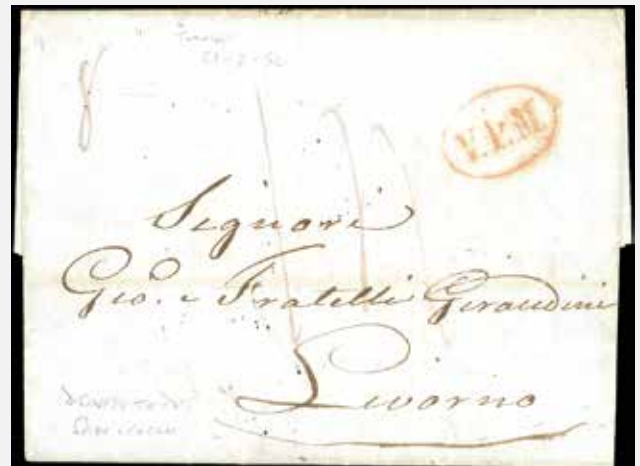 8
V.E.M.
Signori
Gio. e Fratelli Giraudini
Livorno